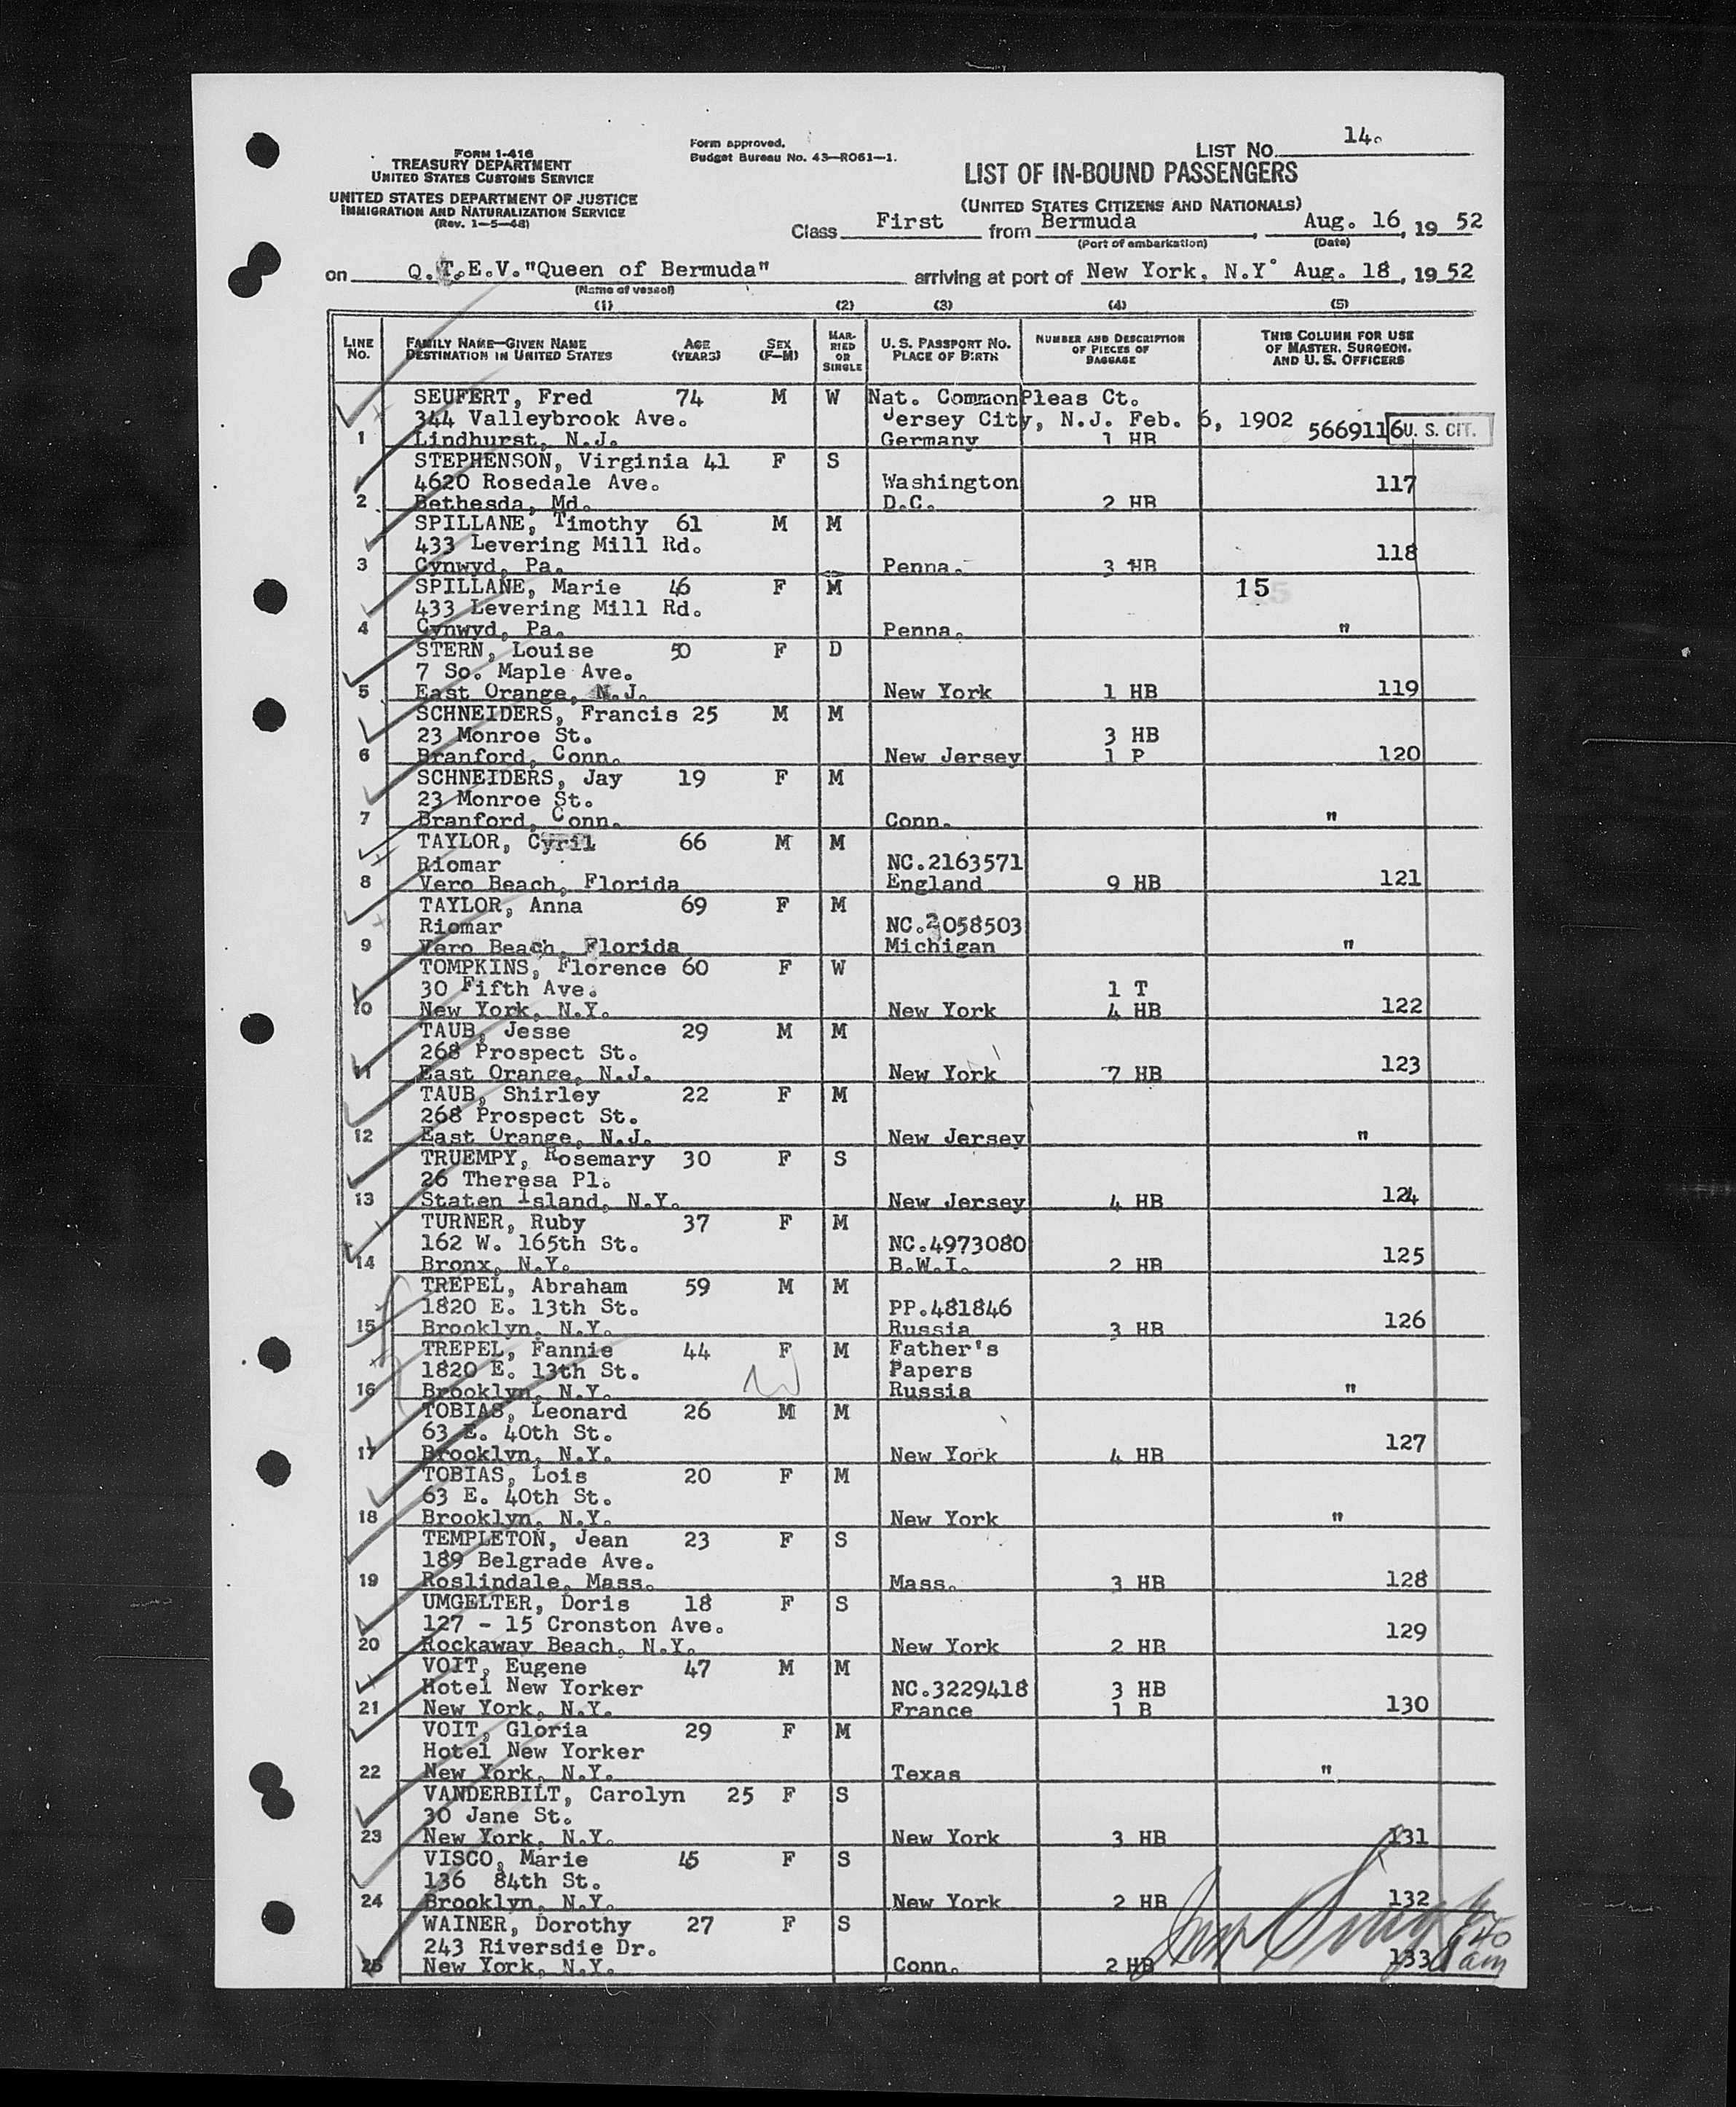 FORM I-416
TREASURY DEPARTMENT
UNITED STATES CUSTOMS SERVICE
UNITED STATES DEPARTMENT OF JUSTICE
IMMIGRATION AND NATURALIZATION SERVICE
(Rev. 1-5-48)
Form approved.
Budget Bureau No. 43-R061-1.
LIST NO. 14.
LIST OF IN-BOUND PASSENGERS
(UNITED STATES CITIZENS AND NATIONALS)
Class First from Bermuda, Aug. 16, 19 52
(Port of embarkation) (Date)
on Q.T.E.V. "Queen of Bermuda" arriving at port of New York, N.Y. Aug. 18, 19 52
(Name of vessel)
(1) (2) (3) (4) (5)
LINE NO. FAMILY NAME—GIVEN NAME DESTINATION IN UNITED STATES AGE (YEARS) SEX (F-M) MARRIED OR SINGLE U. S. PASSPORT NO. PLACE OF BIRTH NUMBER AND DESCRIPTION OF PIECES OF BAGGAGE THIS COLUMN FOR USE OF MASTER, SURGEON, AND U. S. OFFICERS
SEUFERT, Fred 74 M W Nat. Common Pleas Ct.
344 Valleybrook Ave. Jersey City, N.J. Feb. 6, 1902 5669116 U. S. CIT.
1 Lindhurst, N.J. Germany 1 HB
STEPHENSON, Virginia 41 F S
4620 Rosedale Ave. Washington 117
2 Bethesda, Md. D.C. 2 HB
SPILLANE, Timothy 61 M M
433 Levering Mill Rd. 118
3 Cynwyd, Pa. Penna. 3 HB
SPILLANE, Marie 46 F M 15
433 Levering Mill Rd.
4 Cynwyd, Pa. Penna. "
STERN, Louise 50 F D
7 So. Maple Ave.
5 East Orange, N.J. New York 1 HB 119
SCHNEIDERS, Francis 25 M M
23 Monroe St. 3 HB
6 Branford, Conn. New Jersey 1 P 120
SCHNEIDERS, Jay 19 F M
23 Monroe St.
7 Branford, Conn. Conn. "
TAYLOR, Cyril 66 M M
Riomar NC.2163571
8 Vero Beach, Florida England 9 HB 121
TAYLOR, Anna 69 F M
Riomar NC.2058503
9 Vero Beach, Florida Michigan "
TOMPKINS, Florence 60 F W
30 Fifth Ave. 1 T
10 New York, N.Y. New York 4 HB 122
TAUB, Jesse 29 M M
268 Prospect St.
11 East Orange, N.J. New York 7 HB 123
TAUB, Shirley 22 F M
268 Prospect St.
12 East Orange, N.J. New Jersey "
TRUEMPY, Rosemary 30 F S
26 Theresa Pl.
13 Staten Island, N.Y. New Jersey 4 HB 124
TURNER, Ruby 37 F M
162 W. 165th St. NC.4973080
14 Bronx, N.Y. B.W.I. 2 HB 125
TREPEL, Abraham 59 M M
1820 E. 13th St. PP.481846
15 Brooklyn, N.Y. Russia 3 HB 126
TREPEL, Fannie 44 F M Father's
1820 E. 13th St. Papers
16 Brooklyn, N.Y. Russia "
TOBIAS, Leonard 26 M M
63 E. 40th St.
17 Brooklyn, N.Y. New York 4 HB 127
TOBIAS, Lois 20 F M
63 E. 40th St.
18 Brooklyn, N.Y. New York "
TEMPLETON, Jean 23 F S
189 Belgrade Ave.
19 Roslindale, Mass. Mass. 3 HB 128
UMGELTER, Doris 18 F S
127 - 15 Cronston Ave.
20 Rockaway Beach, N.Y. New York 2 HB 129
VOIT, Eugene 47 M M
Hotel New Yorker NC.3229418 3 HB
21 New York, N.Y. France 1 B 130
VOIT, Gloria 29 F M
Hotel New Yorker
22 New York, N.Y. Texas "
VANDERBILT, Carolyn 25 F S
30 Jane St.
23 New York, N.Y. New York 3 HB 131
VISCO, Marie 45 F S
136 84th St.
24 Brooklyn, N.Y. New York 2 HB 132
WAINER, Dorothy 27 F S
243 Riversdie Dr.
25 New York, N.Y. Conn. 2 HB 133 am